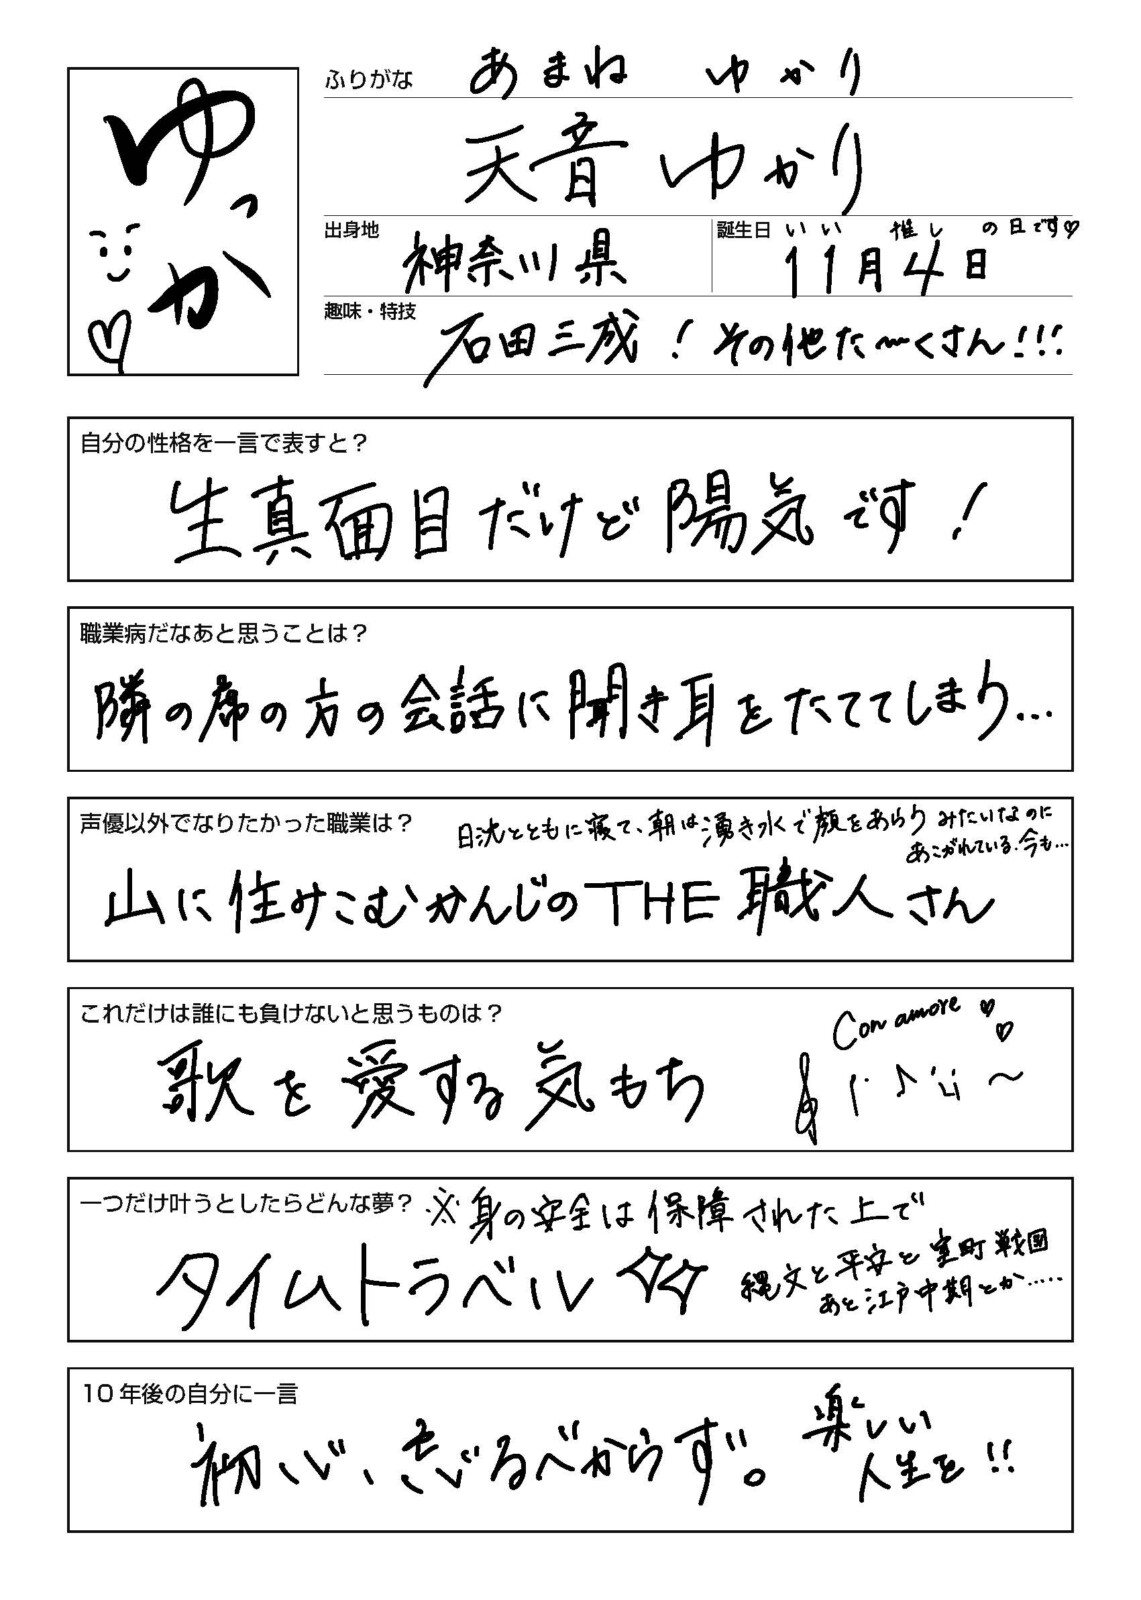 ゆっか
ふりがな あまね ゆかり
天音 ゆかり
出身地 神奈川県
誕生日 いい 推し の日です♡
11月4日
趣味・特技
石田三成！その他た〜くさん!!!
自分の性格を一言で表すと？
生真面目だけど陽気です！
職業病だなあと思うことは？
隣の席の方の会話に聞き耳をたててしまり…
声優以外でなりたかった職業は？
日沈とともに寝て、朝は湧き水で顔をあらう みたいなのに
あこがれている.今も…
山に住みこむかんじのTHE職人さん
これだけは誰にも負けないと思うものは？
Con amore ♡♡
歌を愛する気もち
一つだけ叶うとしたらどんな夢？ ※身の安全は保障された上で
タイムトラベル
縄文と平安と室町戦国
あと江戸中期とか.....
10年後の自分に一言
初心、忘るべからず。
楽しい
人生を!!